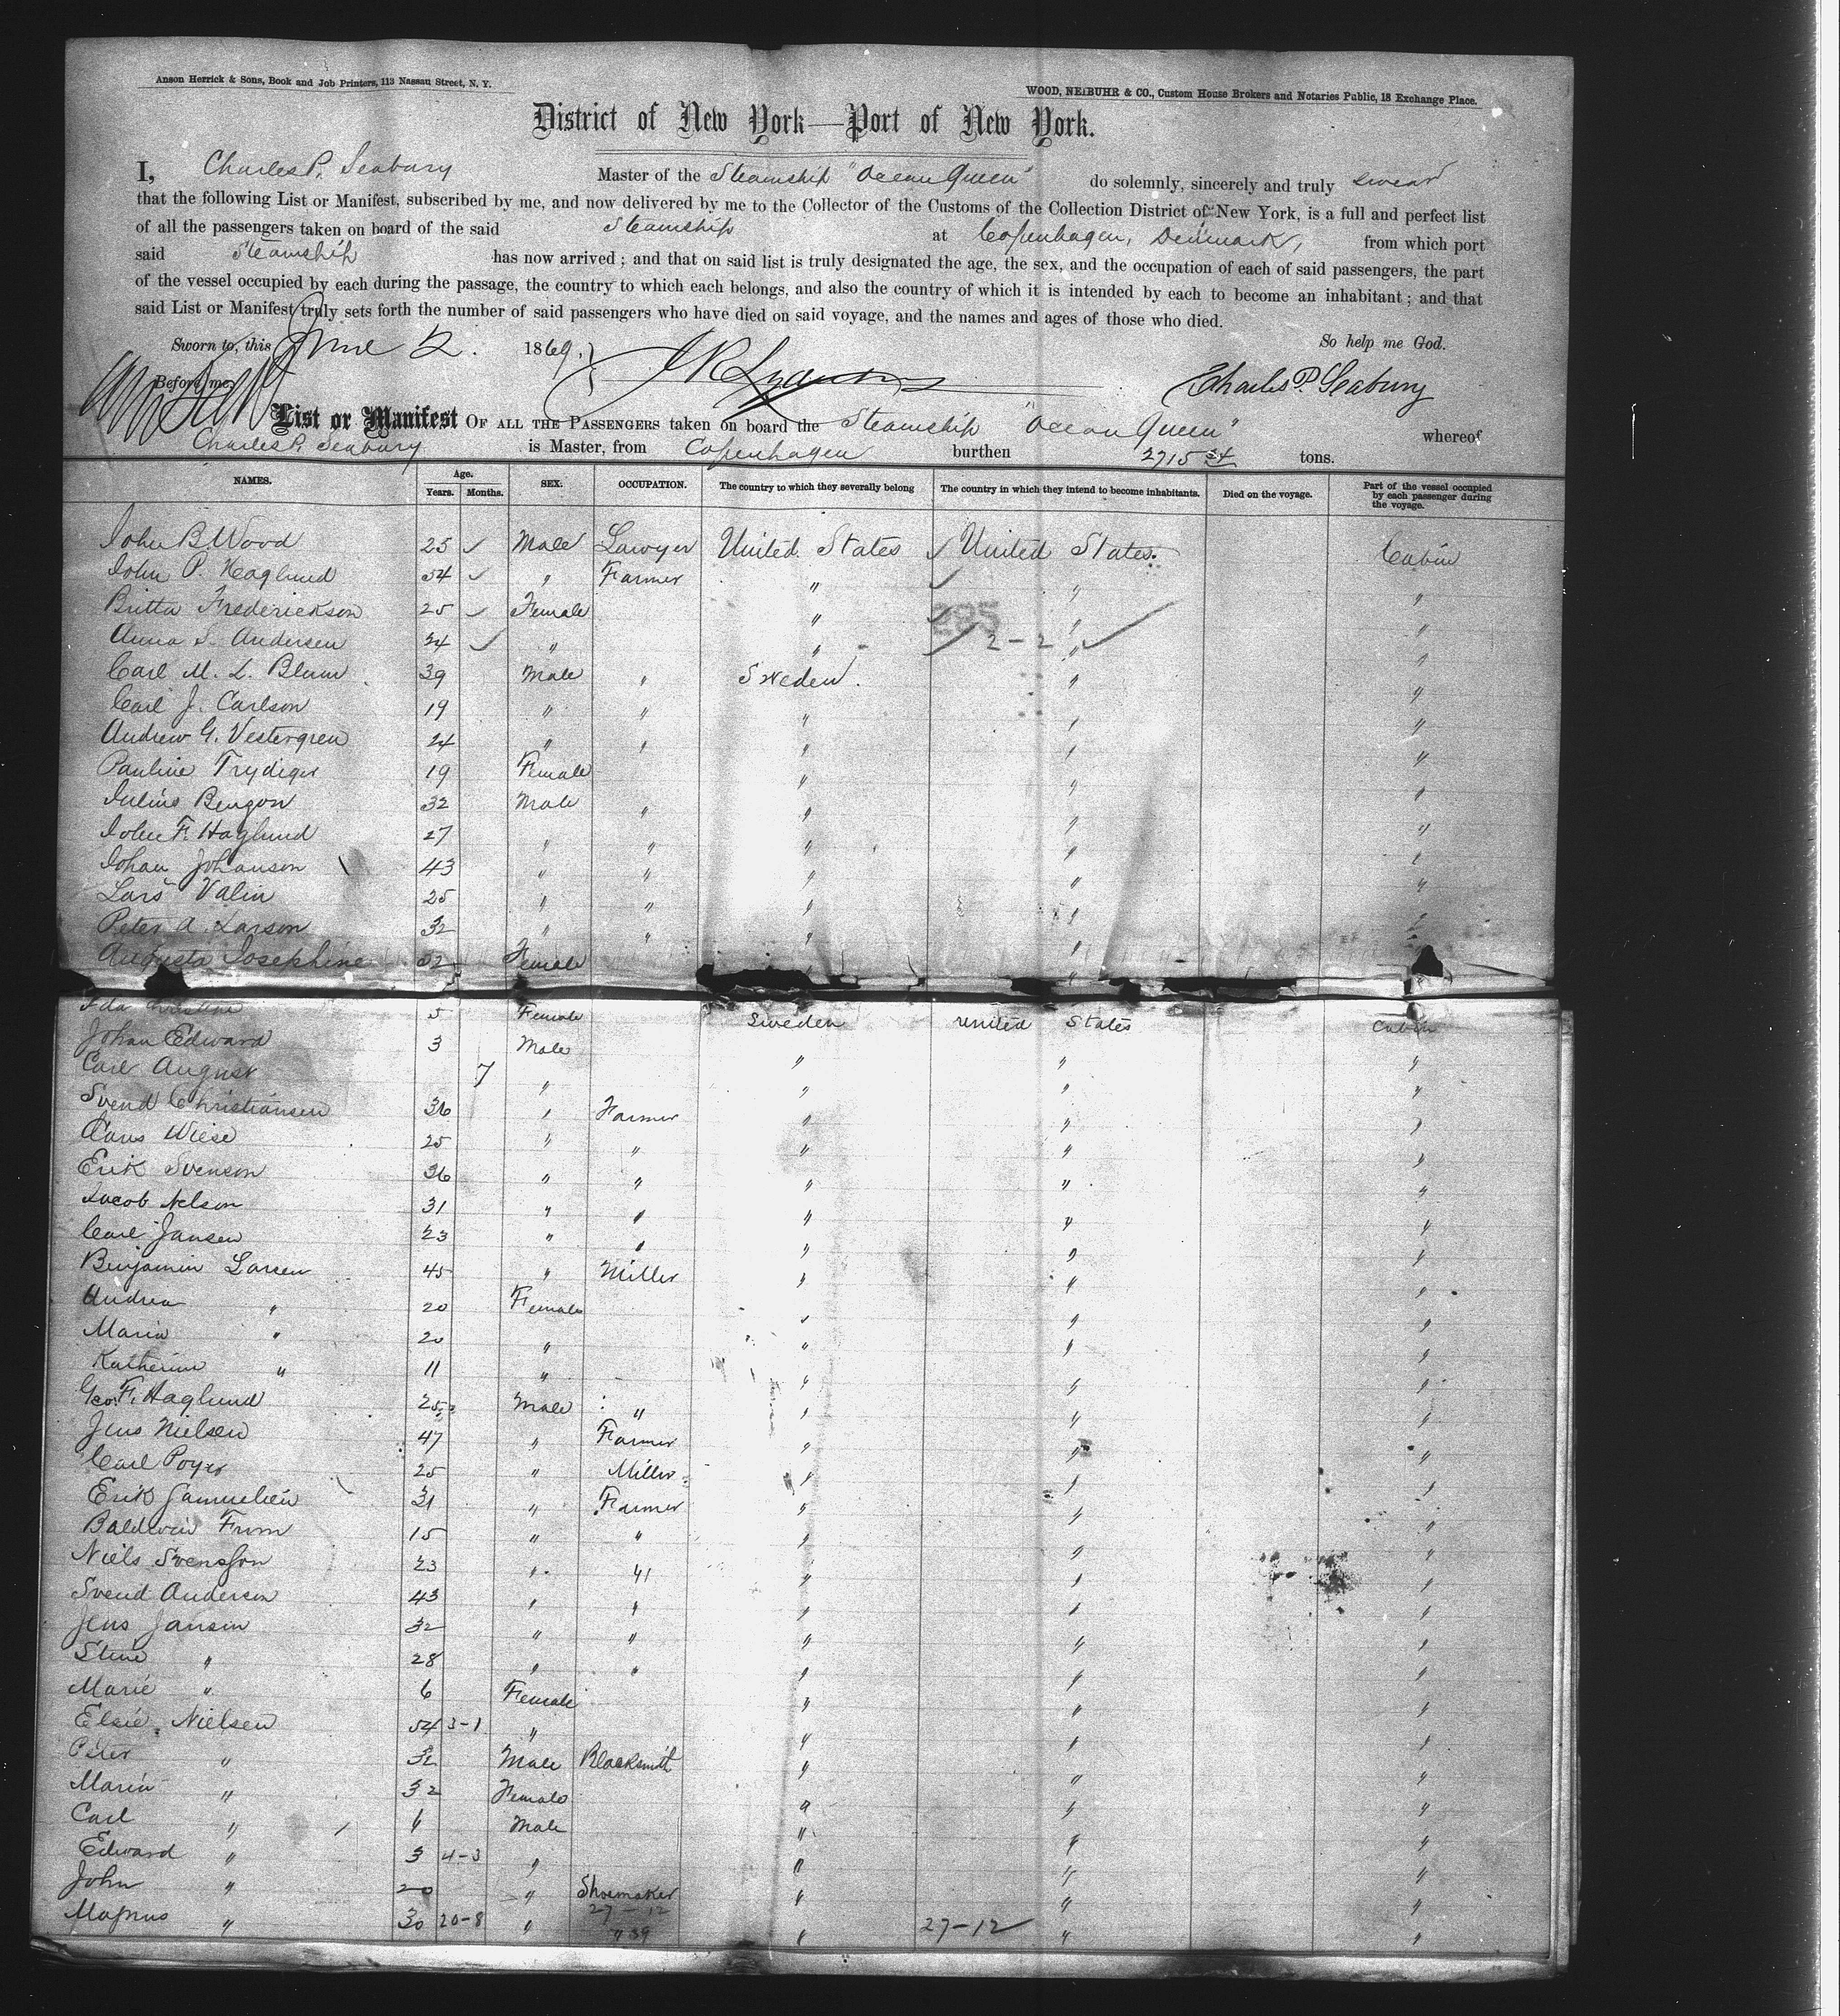 Anson Herrick & Sons, Book and Job Printers, 113 Nassau Street, N. Y.
WOOD, NEIBUHR & CO., Custom House Brokers and Notaries Public, 18 Exchange Place.
District of New York—Port of New York.
I, Charles P. Seabury Master of the Steamship "Ocean Queen" do solemnly, sincerely and truly swear
that the following List or Manifest, subscribed by me, and now delivered by me to the Collector of the Customs of the Collection District of New York, is a full and perfect list
of all the passengers taken on board of the said Steamship at Copenhagen, Denmark, from which port
said Steamship has now arrived; and that on said list is truly designated the age, the sex, and the occupation of each of said passengers, the part
of the vessel occupied by each during the passage, the country to which each belongs, and also the country of which it is intended by each to become an inhabitant; and that
said List or Manifest truly sets forth the number of said passengers who have died on said voyage, and the names and ages of those who died.
Sworn to, this June 2. 1869. So help me God.
Before me, Charles P. Seabury
List or Manifest OF ALL THE PASSENGERS taken on board the Steamship "Ocean Queen" whereof
Charles P. Seabury is Master, from Copenhagen burthen 2715 24 tons.
NAMES. Age. Years. Months. SEX. OCCUPATION. The country to which they severally belong The country in which they intend to become inhabitants. Died on the voyage. Part of the vessel occupied by each passenger during the voyage.
John B. Wood 25 Male Lawyer United States United States. Cabin
John P. Haglund 54 " Farmer " " "
Britta Frederickson 25 Female " 295 " "
Anna S. Andersen 24 " " 2-2 " "
Carl M. L. Blum 39 Male " Sweden. " "
Carl J. Carlson 19 " " " " "
Andrew G. Vestergren 24 " " " " "
Pauline Trydiger 19 Female " " "
Julius Bengon 32 Male " " " "
John F. Haglund 27 " " " " "
Johan Johanson 43 " " " " "
Lars Valin 25 " " " " "
Peter A. Larson 32 " " " " "
Augusta Josephine 32 Female "
Ida 5 Female Sweden United States Cabin
Johan Edward 3 Male " " "
Carl August 7 " " " "
Svend Christiansen 36 " Farmer " " "
Claus Wiese 25 " " " " "
Erik Svenson 36 " " " " "
Jacob Nelson 31 " " " " "
Carl Jansen 23 " " " " "
Benjamin Larsen 45 " Miller " " "
Andrea " 20 Female " " "
Maria " 20 " " " "
Katherine " 11 " " " "
Geo. F. Haglund 25 Male " " " "
Jens Nielsen 47 " Farmer " " "
Carl Poyer 25 " Miller " " "
Erik Samuelien 31 " Farmer " " "
Baldwin From 15 " " " " "
Niels Svensson 23 " " " " "
Svend Anderson 43 " " " " "
Jens Jansen 32 " " " " "
Stine " 28 " " " " "
Marie " 6 Female " " "
Elsie Nielsen 54 3-1 " " " "
Peter " 32 Male Blacksmit " " "
Maria " 32 Female " " "
Carl " 6 Male " " "
Edward " 3 4-3 " " " "
John " 20 " Shoemaker " " "
27-12
Magnus " 30 20-8 " " 39 " 27-12 " "